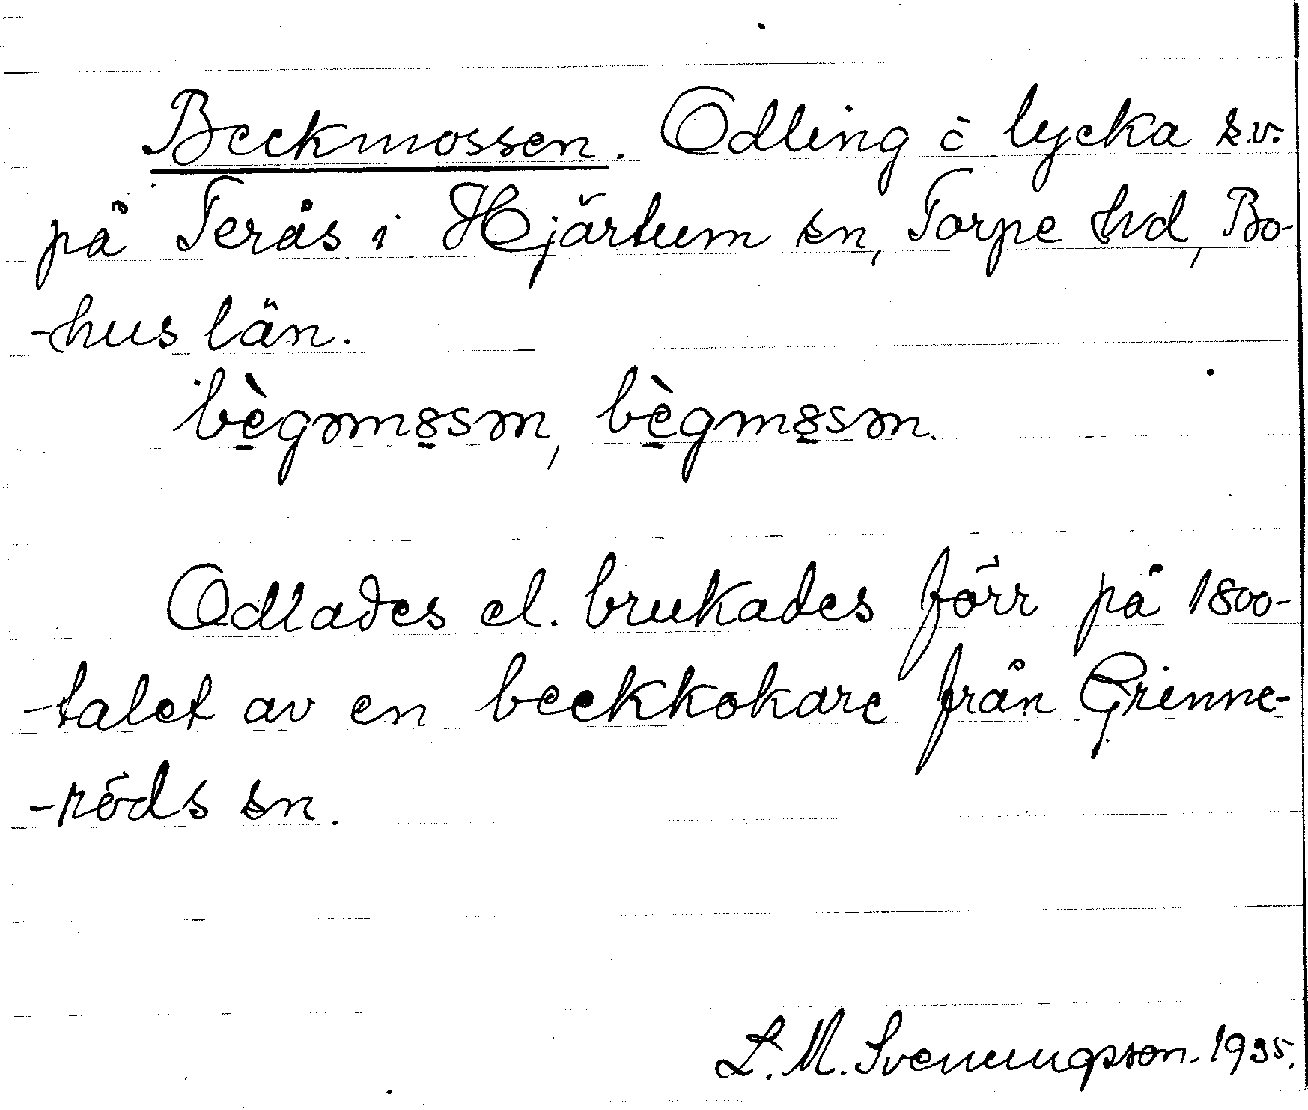 Beckmossen. Odling o lycka s.v.
på Terås i Hjärtum sn, Torpe hd, Bo-
-hus län.
bègəm8sən, bègm8sən.
Odlades el. brukades förr på 1800-
-talet av en beckkokare från Grinne-
-röds sn.
L. M. Svenungsson. 1935.